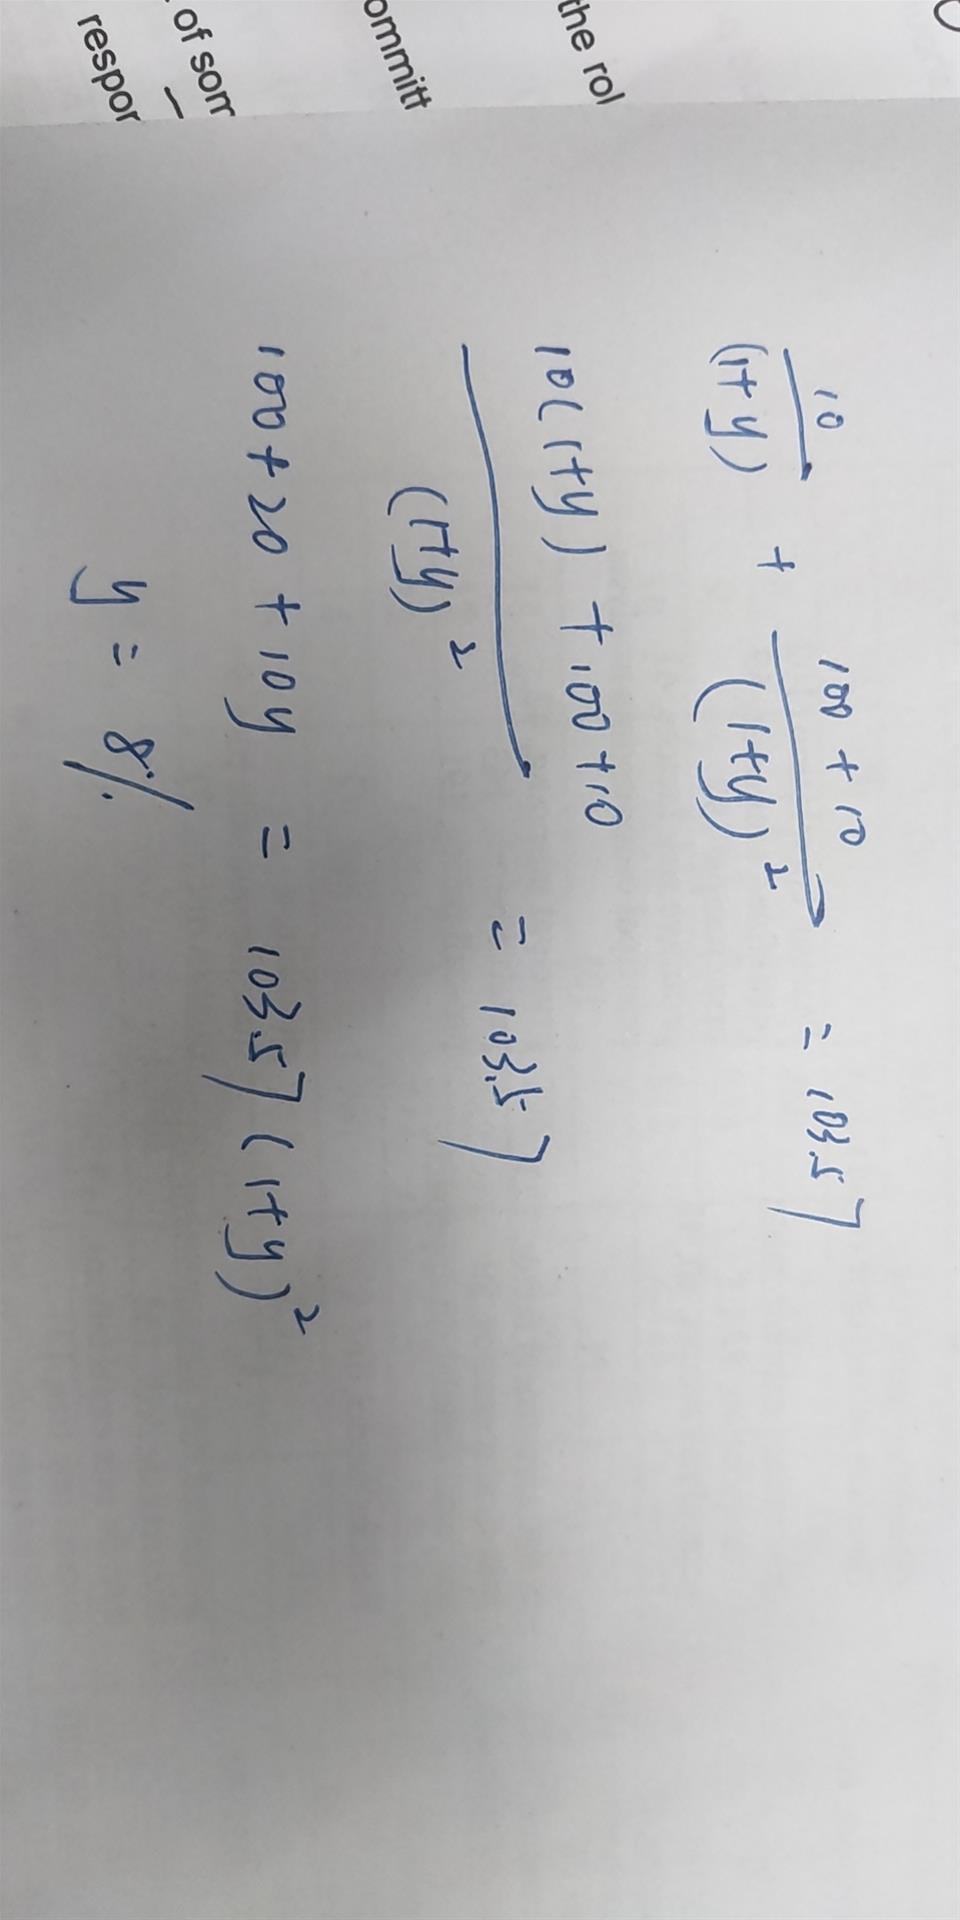 the rol
ommitt
of som
respon
10/(1+y) + (100 + 10)/(1+y)² = 103.57
(10(1+y) + 100 + 10)/(1+y)² = 103.57
100 + 20 + 10y = 103.57 (1+y)²
y = 8%